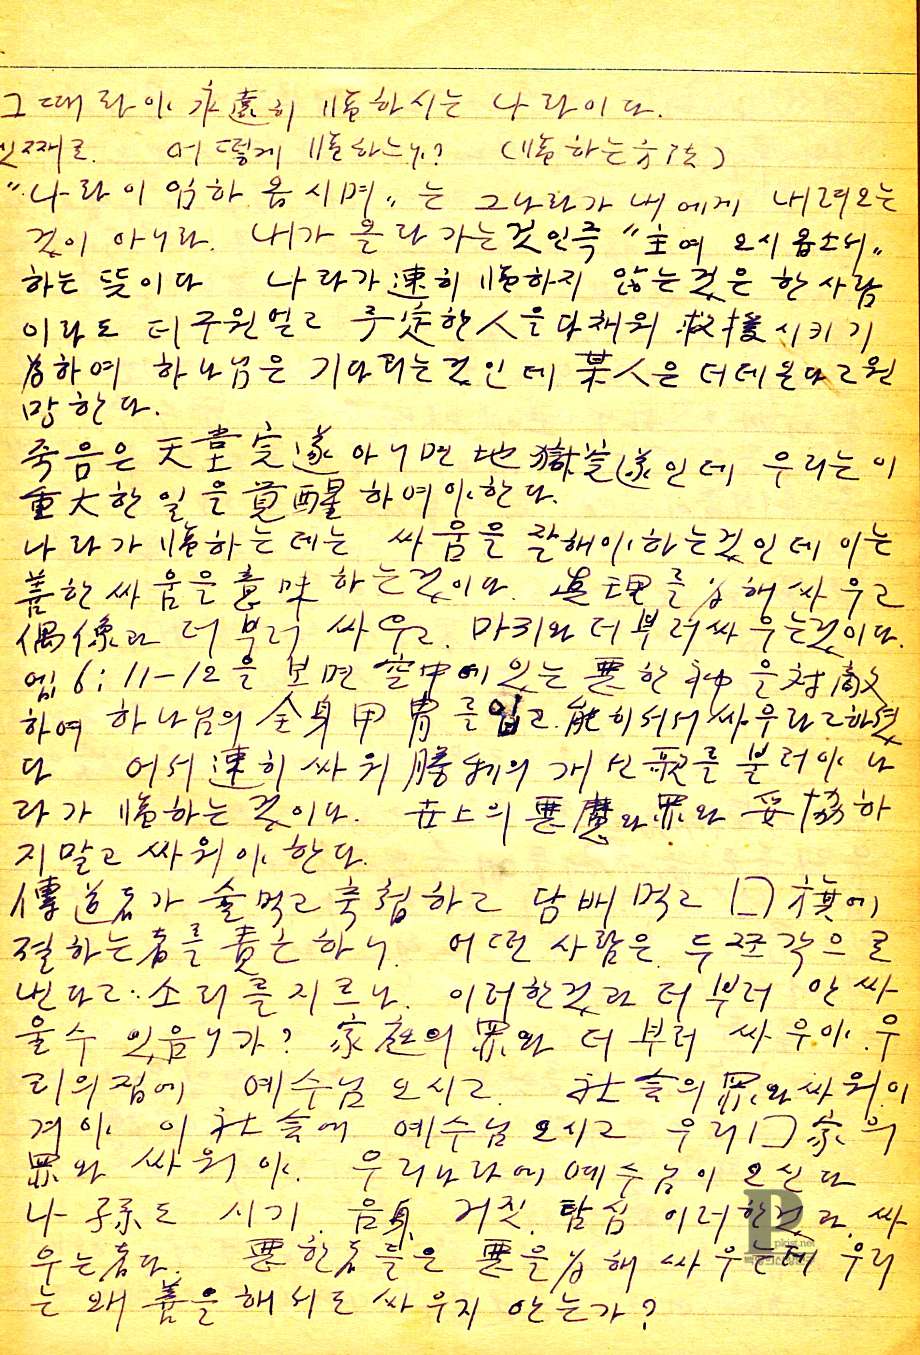 그때 라야 永遠히 臨하시는 나라이다.
째로. 어떻게 臨하는가? (臨하는 方法)
"나라이 임하옵시며" 는 그나라가 내게 내려오는
것이 아니라. 내가 올라 가는것인즉 "主여 오시옵소서"
하는 뜻이다 나라가 速히 臨하지 않는것은 한사람
이라도 더 구원얻고 予定한人을 다채워 救援시키기
爲하여 하나님은 기다리는것인데 某人은 더데온다고 원
망한다.
죽음은 天堂完遂 아니면 地獄完遂인데 우리는 이
重大한 일을 覚醒하여야 한다.
나라가 臨하는데는 싸움을 잘해야 하는것인데 이는
善한 싸움을 意味하는것이다. 眞理를 爲해 싸우고
偶像과 더부러 싸우고. 마귀와 더부러 싸우는것이다.
엡 6:11-12을 보면 空中에 있는 悪한 神을 対敵
하여 하나님의 全身甲冑를 입고. 能히 서서 싸우라고 하였
다 어서 速히 싸워 勝利의 개선歌를 불러야 나
라가 臨하는 것이다. 世上의 悪魔와 罪와 妥協하
지말고 싸워야 한다.
傳道者가 술먹고 축첩하고 담배먹고 口旗에
절하는者를 責흔하니. 어떤 사람은. 두쪼각으로
낸다고·소리를 지르나. 이러한것과 더부러 안싸
울수 있음니가? 家庭의 罪와 더부러 싸우야. 우
리의 집에 예수님 오시고. 社会의 罪와 싸워.이
겨야 이 社会에 예수님 오시고 우리口家의
罪와 싸워야. 우리나라에 예수님이 오신다
나 子孫도 시기. 음身. 거짓. 탐심 이러한것과 싸
우는者다. 悪한者들은 悪을 爲해 싸우는데 우리
는 왜 善을 해서도 싸우지 안는가?
pkist.net